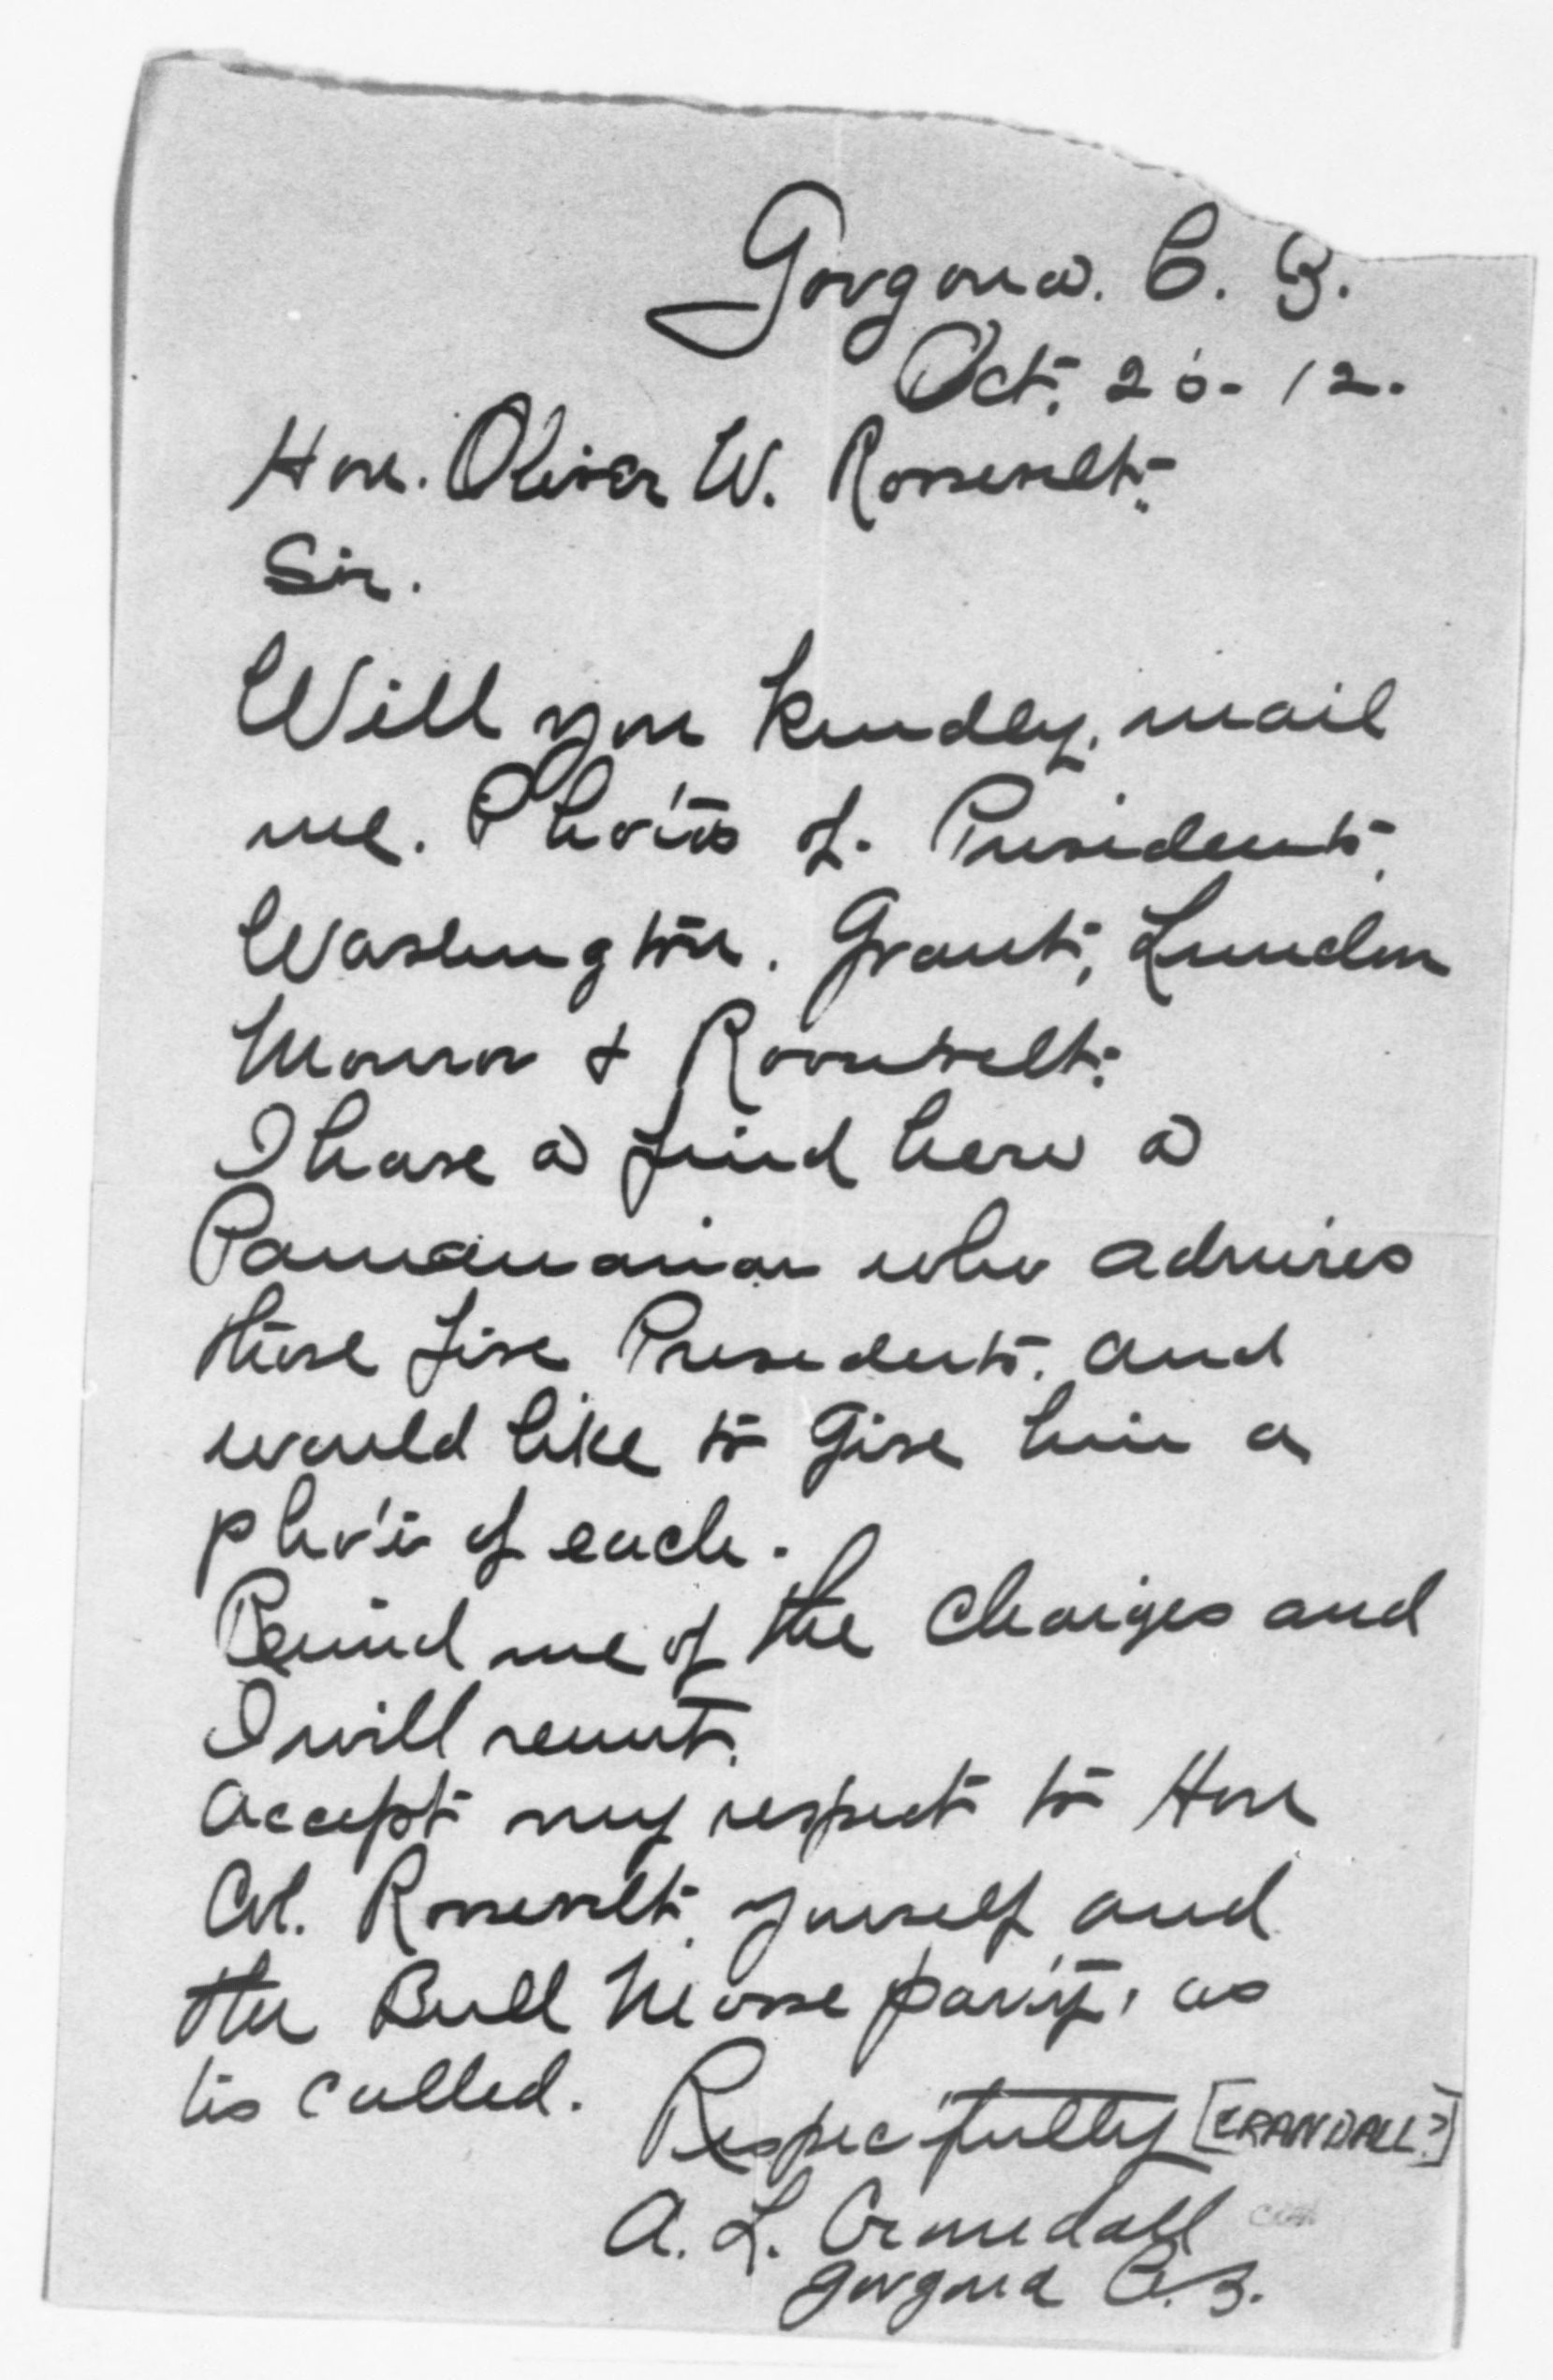 Gorgona. C. Z.
Oct. 26-12.
Hon. Oliver W. Roosevelt.
Sir.
Will you kindly, mail
me. Photos of. Presidents,
Washington. Grant, Lincoln
Monroe & Roosevelt.
I have a friend here a
Panamanian who admires
those five Presidents. and
would like to give him a
photo of each.
Remind me of the charges and
I will remit.
Accept my respect to Hon
Col. Roosevelt, yourself and
the Bull Moose party, as
tis called.
Respectfully [CRANDALL?]
A. L. Crandall
Gorgona C. Z.